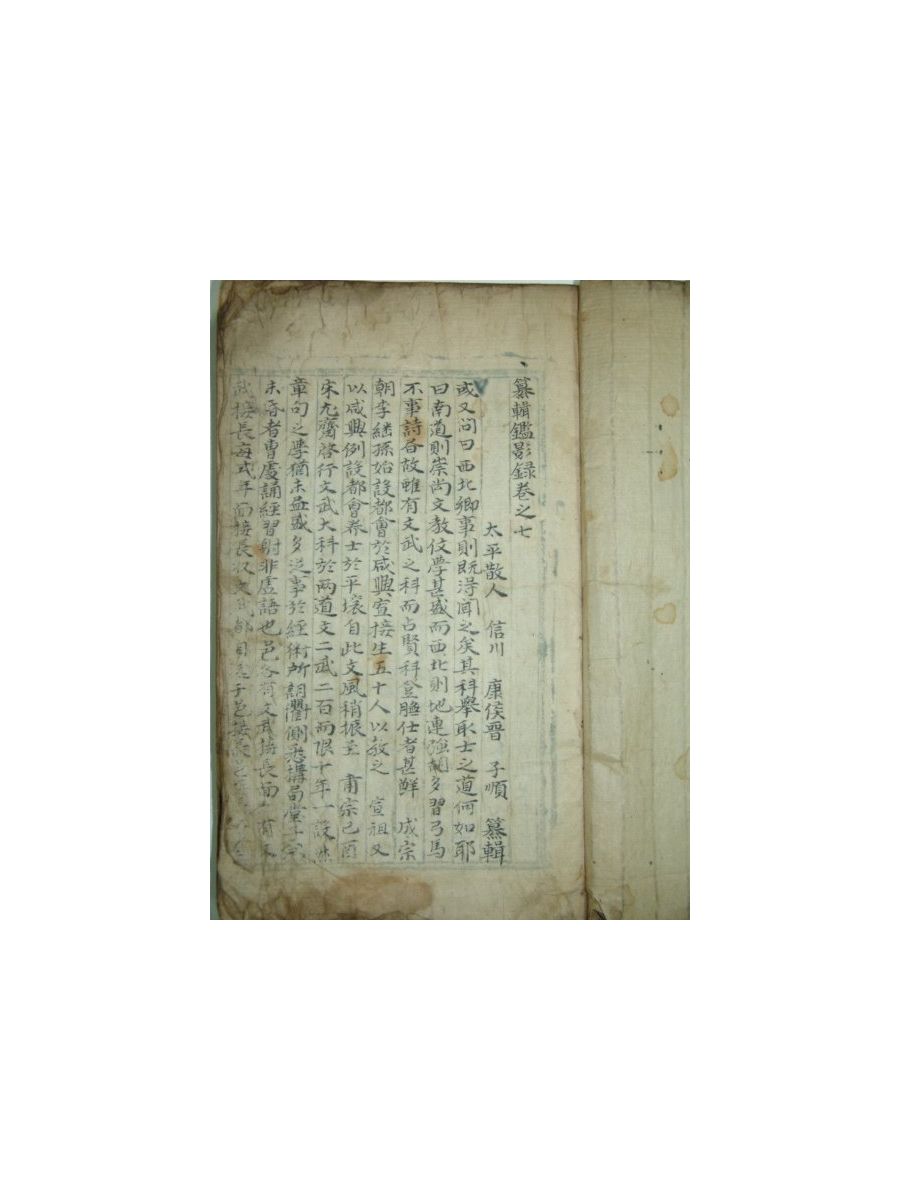 纂輯鑑影録卷之七
太平散人 信川 康侯晋 子順 纂輯
或又问曰西北卿事則既淂闻之矣其科舉取士之道何如耶
曰南道則崇尚文教伎學甚盛而西北則地連強胡多習弓馬
不事詩谷故雖有文武之科而占賢科登膴仕者甚鮮 成宗
朝李継孫始設都會於咸興宣接生五十人以敎之 宣祖又
以咸興例設都會养士於平壤自此文風稍振至 甫宗己酉
宋尤齋啓行文武大科於兩道文二武二百而限十年一設然
章句之學猶未益盛多从事於經術所謂
未者曹虞誦經習射非虛語也邑各有文武接長面有
接長每式年面接長以文